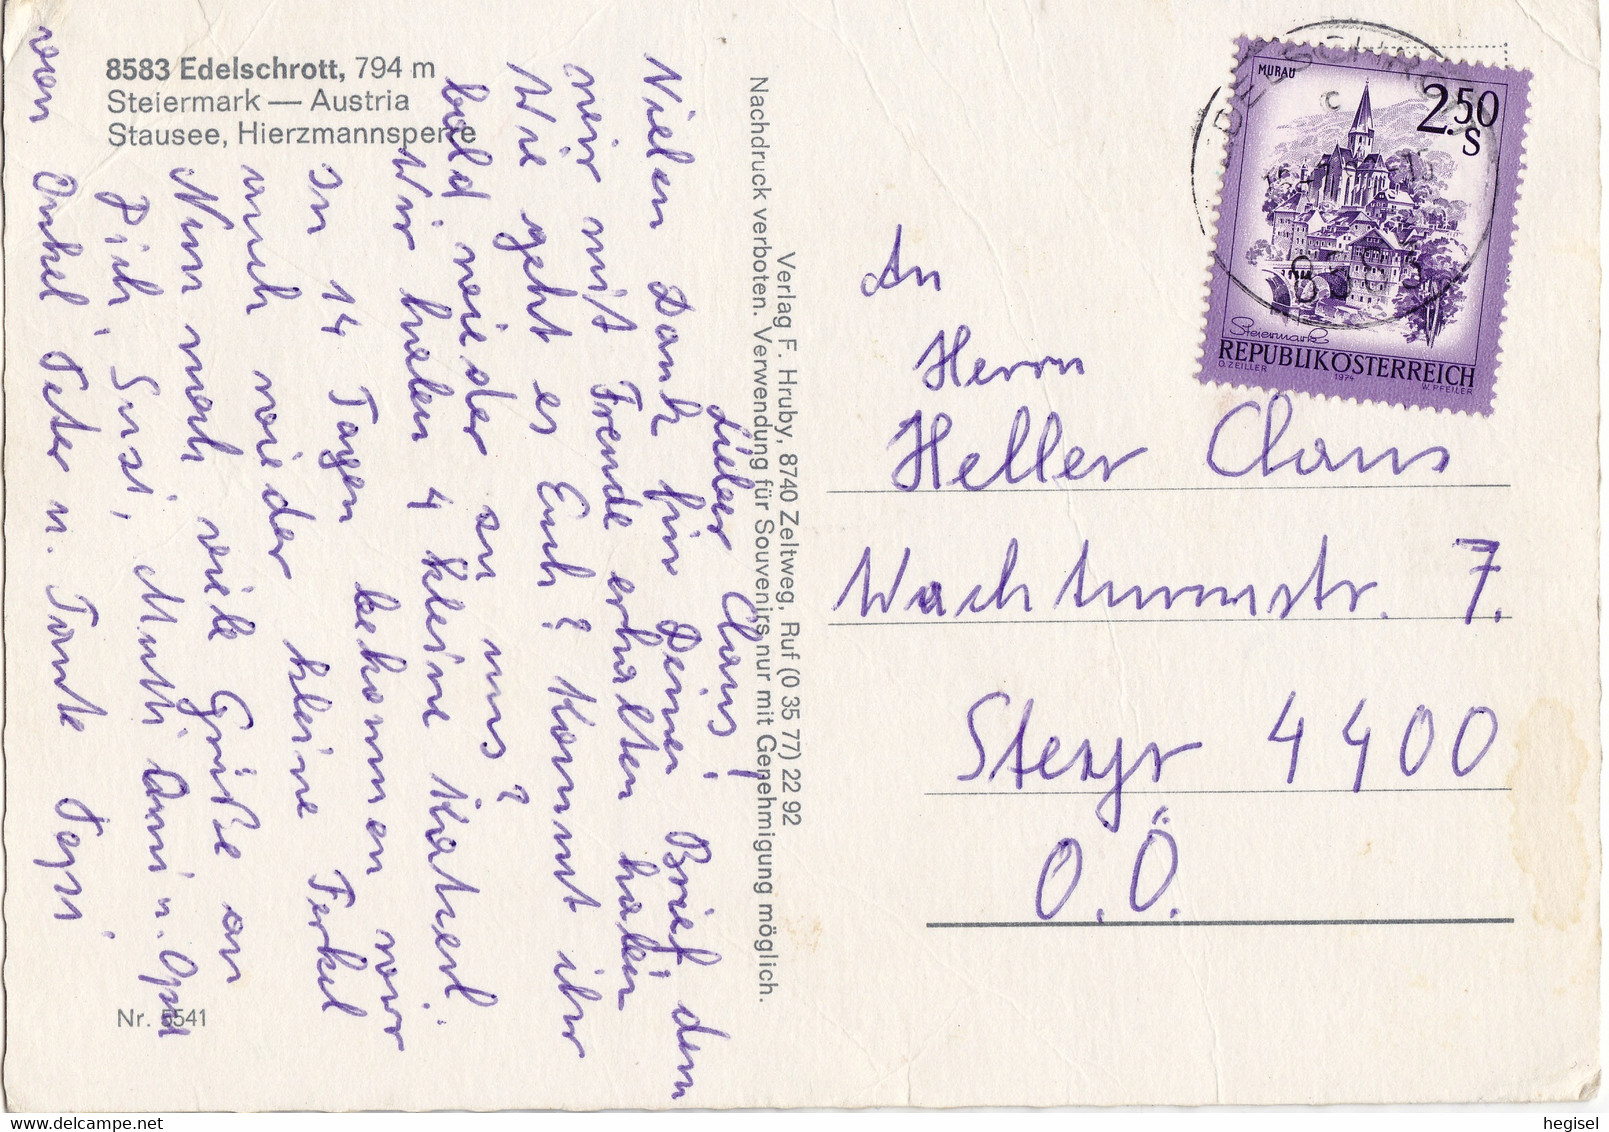 8583 Edelschrott, 794 m
Steiermark — Austria
Stausee, Hierzmannsperre
Lieber Claus!
Vielen Dank für Deinen Brief, den
wir mit Freude erhalten haben
Wie geht es Euch? Kommt ihr
bald wieder zu uns?
Wir haben 4 kleine Katzerl.
In 14 Tagen bekommen wir
auch wieder kleine Ferkel
Nun noch viele Grüße an
Dich, Susi, Mutti Omi u. Opa
von Onkel Peter u. Tante Pepi
Nr. 5541
Verlag F. Hruby, 8740 Zeltweg, Ruf (0 35 77) 22 92
Nachdruck verboten. Verwendung für Souvenirs nur mit Genehmigung möglich.
MURAU
2.50
S
Steiermark
REPUBLIK ÖSTERREICH
O. ZEILLER 1974 W. PFEILER
EDELSCHROTT
8583
An
Herrn
Heller Claus
Wachturmstr. 7.
Steyr 4400
O.Ö.
hegisel